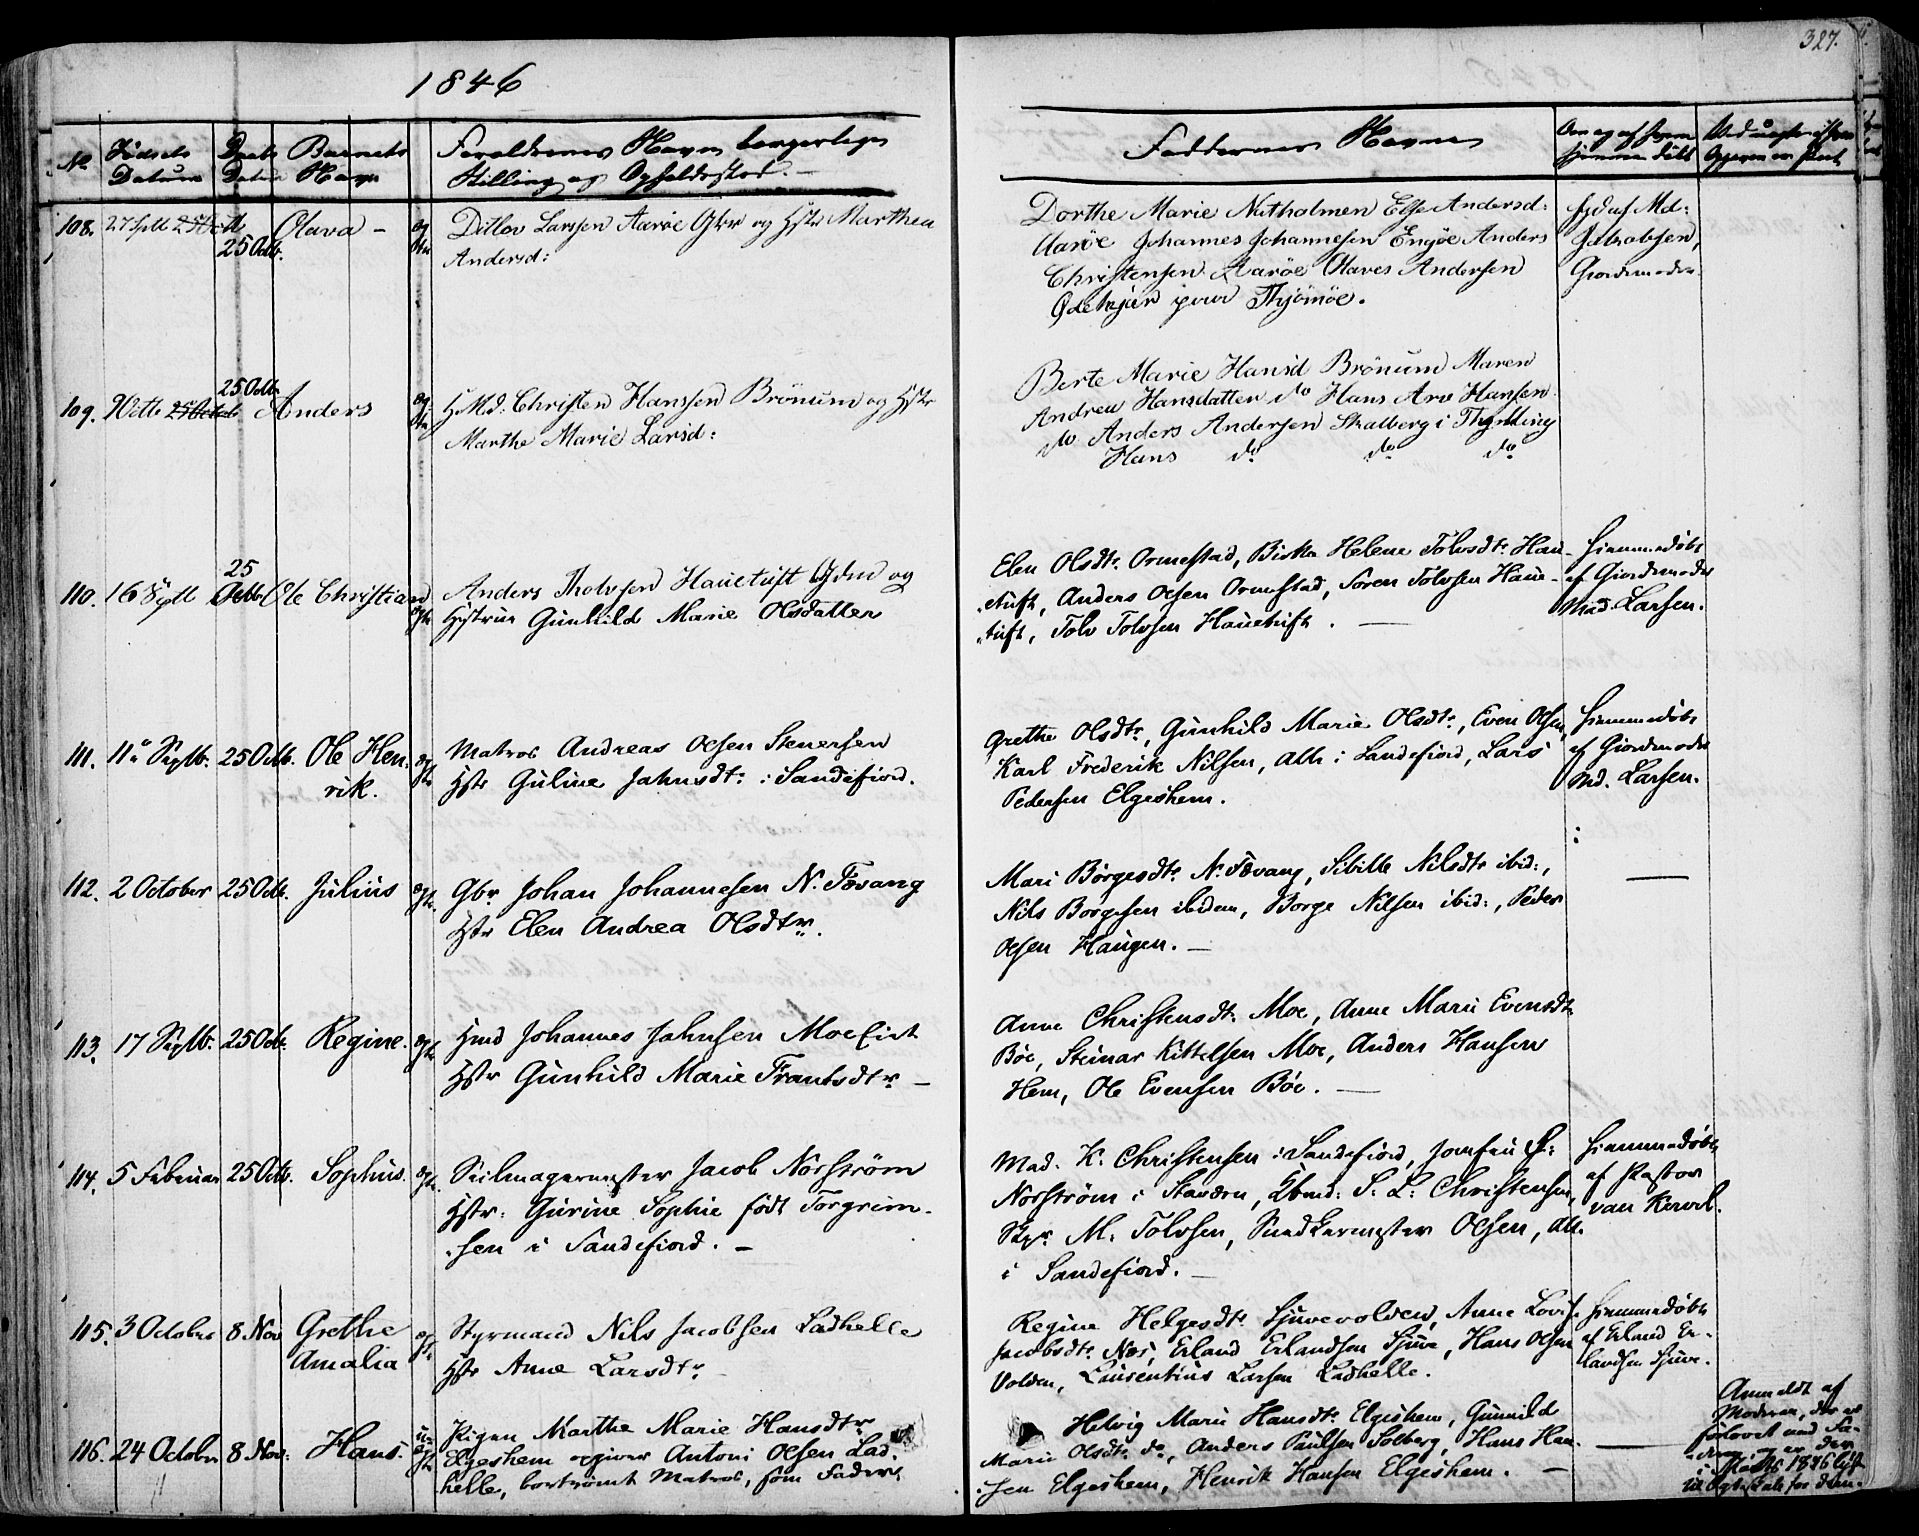 1846
327.
No Fødsels Datum Daabs Datum Barnets Navn Forældrenes Navn borgerlige
Stilling og Opholdssted. —
Faddernes Navne
Om og af hvem
hjemmedøbt
108. 27 Sptb 25 Octb. Olava – Ditlev Larsen Aarøe Gbr og Hstr Marthea
Andersd:
Dorthe Marie Natholmen Else Andersd:
Aarøe Johannes Johannesen Engøe Anders
Christensen Aarøe Olaves Andersen
Thjömöe.
Md:
Jakobsen,
Giordemoder
109. 25 Octb Anders Christen Hanssen Brönum og Hstr
Marthe Marie Larsd:
Berte Marie Hansd Brönum Maren
Andrea Hansdatter do Hans Arv Hansen
do Anders Andersen Skalberg i Thjølling
Hans do do do
110. 16 Septb 25 Octb Ole Christian Anders Tholvsen Hauetuft Gdm og
Hustrue Gunhild Marie Olsdatter
Elen Olsdtr Ormestad, Helene Tolvsdtr Haue-
tuft, Anders Olsen Ormestad, Søren Tolvsen Haue-
tuft, Tolv Tolvsen Hauetuft. —
Hiemmedøbt
af Giordemoder
Mad. Larsen.
111. 11te Septb. 25 Octb. Ole Hen- ægte Matros Andreas Olsen Stenersen
rik. Hstr Guline Jahnsdtr i Sandefiord.
Grethe Olsdtr, Gunhild Marie Olsdtr, Even Olsen,
Karl Frederik Nilsen, alle i Sandefiord, Lars
Pedersen Elgeshem.
Hiemmedøbt
af Giordemoder
Md. Larsen.
112. 2 October 25 Octb. Julius ægte Gbr Johan Johannesen N. Fævang
Hstr Elen Andrea Olsdtr.
Mari Børgesdtr N. Fævang, Sibille Nilsdtr ibid:,
Nils Borgesen ibidem, Borge Nilsen ibid:, Peder
Olsen Haugen. —
113. 17 Septb. 25 Octb. Regine. ægte Hmd Johannes Jahnsen Moe
Hstr Gunhild Marie Frantsdtr —
Anne Christensdtr Moe, Anne Marie Evensdtr
Böe, Steinar Kittelsen Moe, Anders Hansen
Hem, Ole Evensen Böe. —
114. 5 Februar 25 Octb. Sophus. ægte Seilmagermester Jacob Norström
Hstr: Gurine Sophie født Torgrim-
sen i Sandefiord. —
Mad. K. Christensen i Sandefiord, Jomfru
Norström i Stavern, Kbmd: S. L: Christensen,
Skpr M. Tolvsen, Smedkermester Olsen, alle
i Sandefiord. —
Hiemmedøbt
af Pastor
van Kervel.
115. 3 October 8 Nov Grethe ægte Styrmand Nils Jacobsen Ladhelle
Amalia Hstr Anne Larsdtr
Regine Helgesdtr Sjuevolden, Anne Lovise
Jacobsdtr Næs, Erland Erlandsen Sjuve, Hans Olsen
Volden, Laurentius Larsen Ladhelle.
Hiemmedøbt
af Erland Er-
landsen Sjuve.
116. 24 October 8 Nov: Hans. uægte Pigen Marthe Marie Hansdtr
Elgeshem opgiver Antoni Olsen Lad-
helle, bortrømt Matros, som Fader.
Helvig Marie Hansdtr Elgeshem, Gunnild
Marie Olsdtr do, Anders Paulsen Solberg, Hans Han-
sen Elgeshem, Henrik Hansen Elgeshem. —
Anmeldt af
Moderen, der er
forlovet med Fa-
deren, og er der
i 1846 lyst